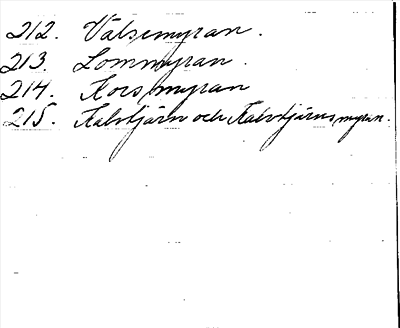 212. Valsemyran.
213. Lommyran.
214. Korsmyran
215. Kalvtjärn och Kalvtjärnsmyran.